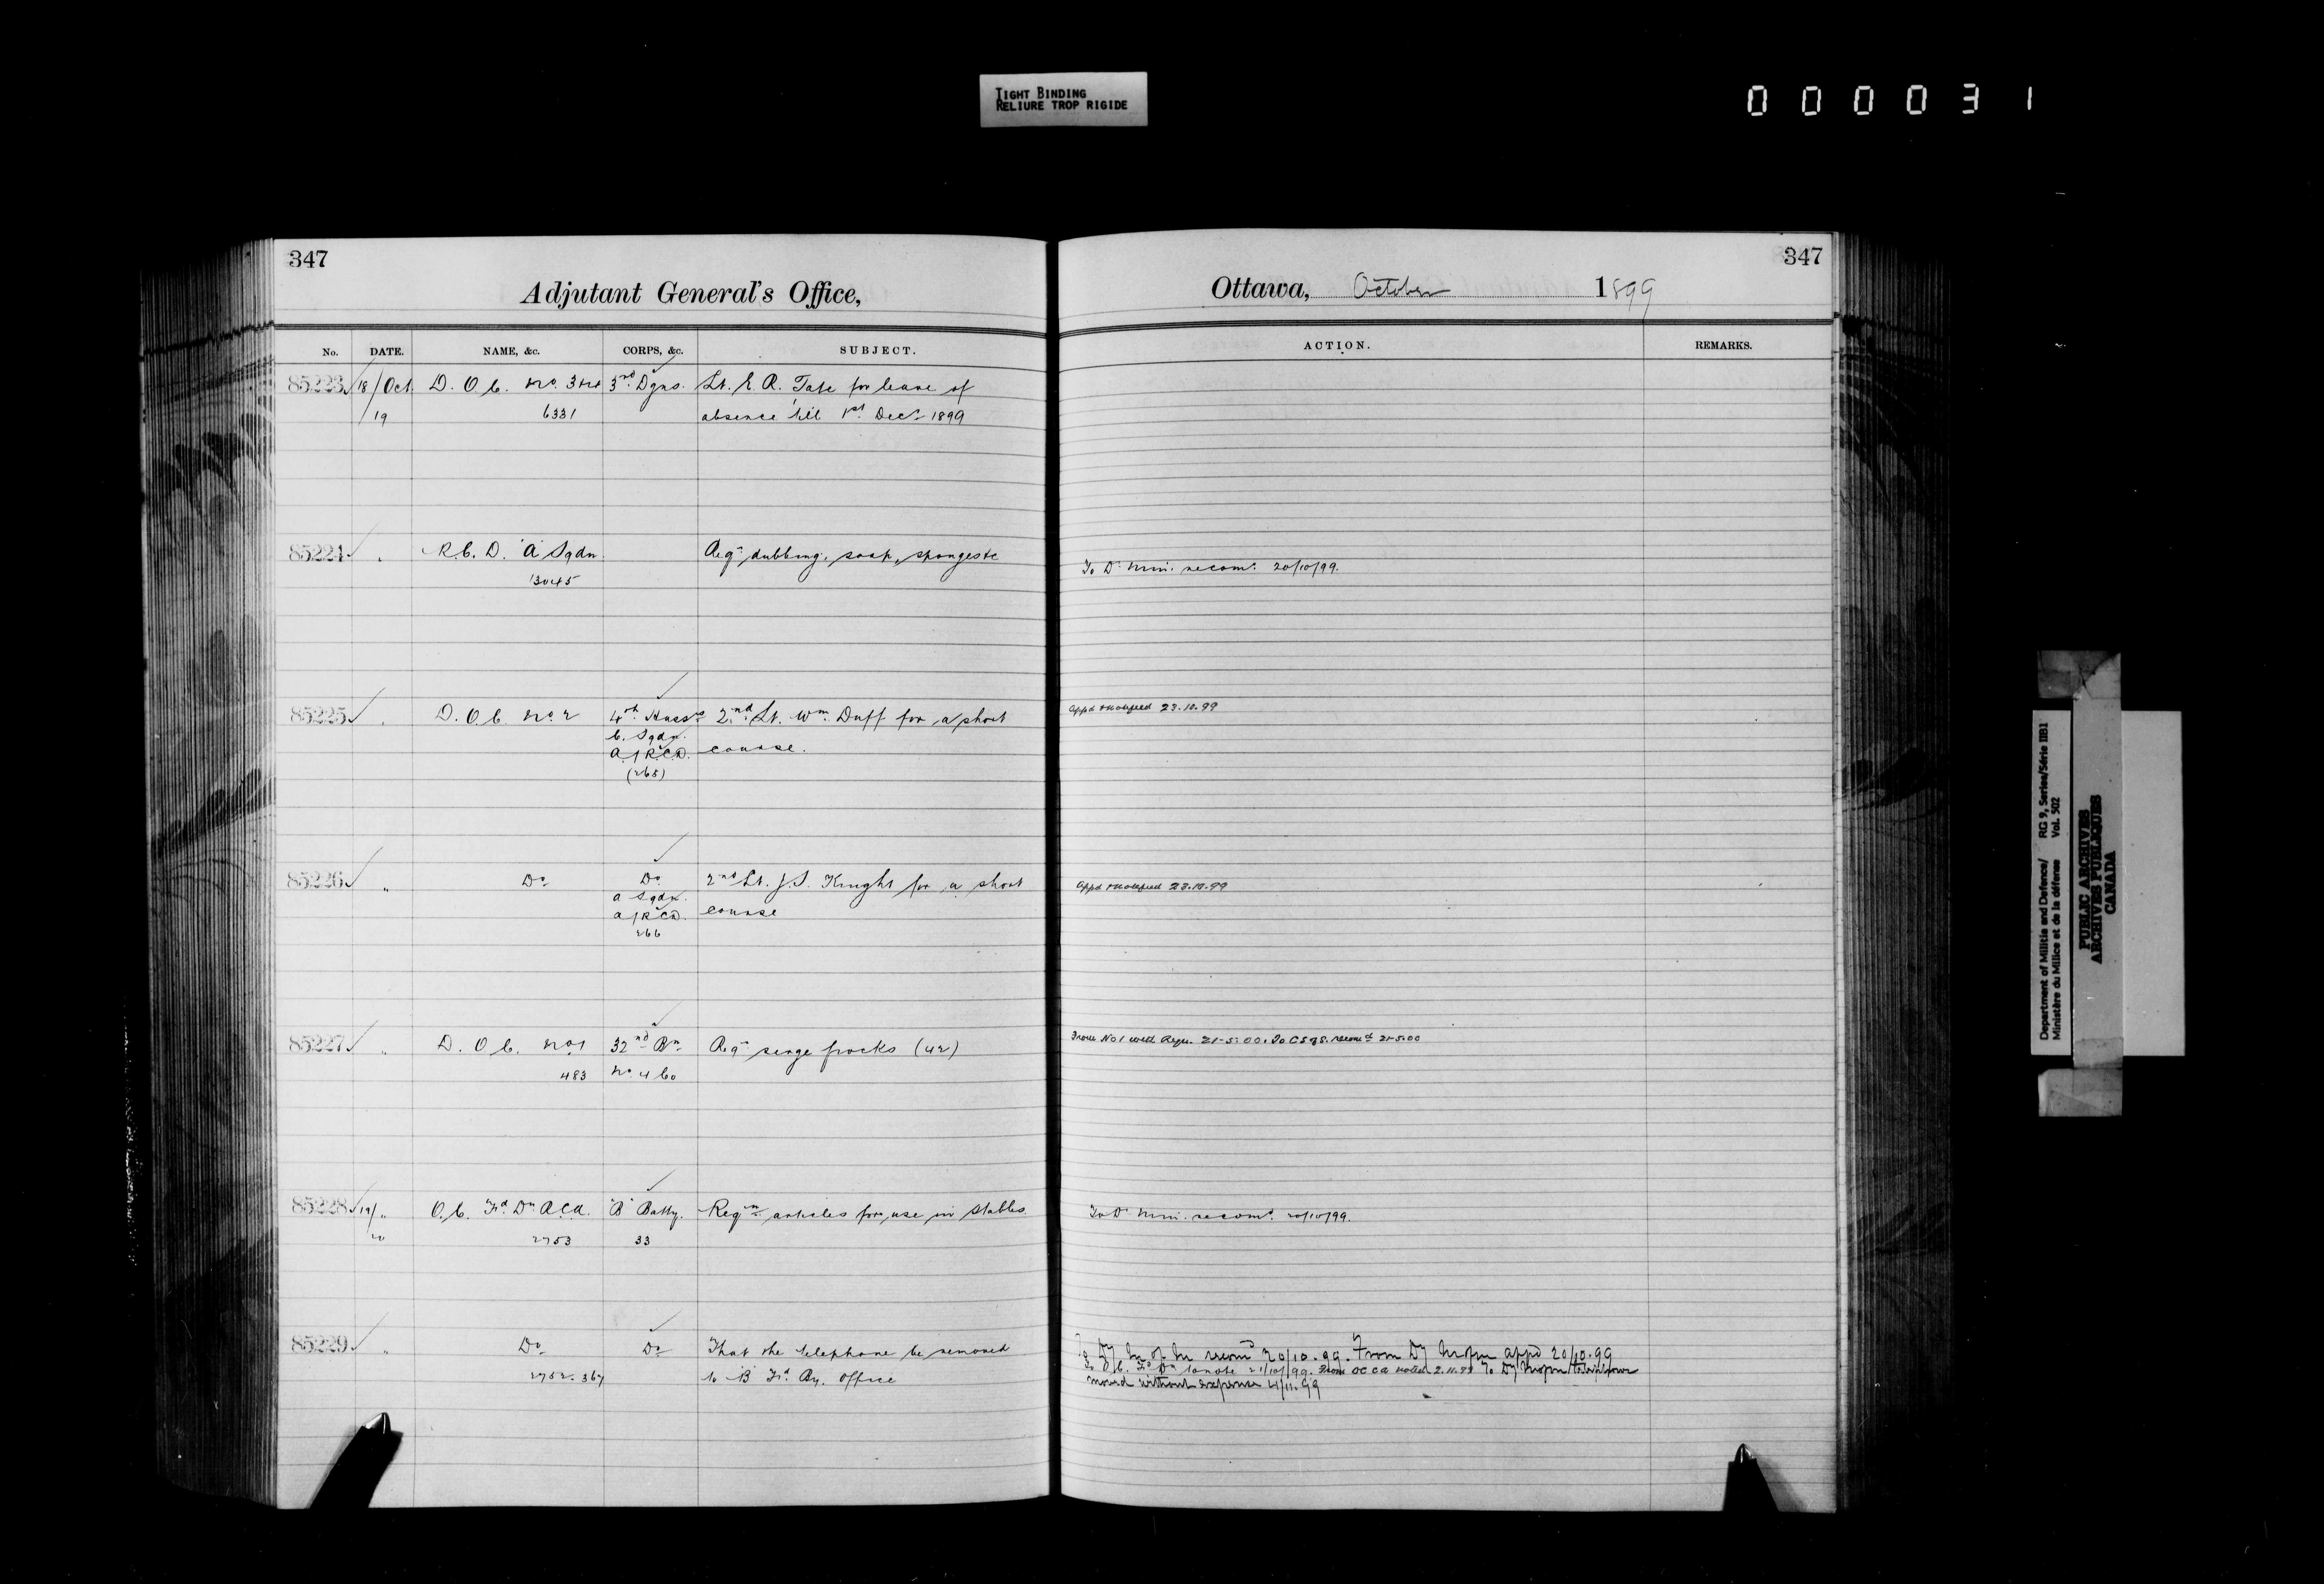 TIGHT BINDING
RELIURE TROP RIGIDE
000031
347
Adjutant General's Office,
No. DATE. NAME, &c. CORPS, &c. SUBJECT.
85223 18/Oct D. O. C. No. 3 & 4 3rd Dgns. Lt. E. R. Tate for leave of
/19 6331 absence till 1st Decr 1899
85224 " R.C.D. "A" Sqdn. Reqn dubbing, soap, sponges &c
13045
85225 " D.O.C. No 2 4th Huss 2nd Lt. Wm Duff for a short
C. Sqdn.
A/RCD. course.
(265)
85226 " Do Do 2nd Lt. J.S. Knight for a short
A Sqdn.
A/RCD. course
266
85227 " D. O. C. No 1 32nd Bn Reqn serge frocks (42)
483 No. 4 Co
85228 19/ " O.C. Fd Dn RCA. "B" Batty. Reqn articles for use in stables.
20 2753 33
85229 " Do Do That the telephone be removed
2752. 367 to "B" Fd. By. Office
347
Ottawa, October 1899
ACTION. REMARKS.
To D. Min. recomd. 20/10/99.
Appd & notified 23.10.99
Appd & notified 23.10.99
From No 1 with Reqn. 21-5-00. To CS of S. recomd 21-5-00
To D. Min. recomd. 20/10/99.
To Dy M of M recomd 20/10.99. From Dy appd 20/10.99
To O.C. Fd Dn to note 21/10/99. From OC CA noted 2.11.99 To Dy telephone
moved without expense 4/11.99
Department of Militia and Defence/ RG 9, Series/Série IIB1
Ministère du Milice et de la défense Vol. 502
PUBLIC ARCHIVES
ARCHIVES PUBLIQUES
CANADA